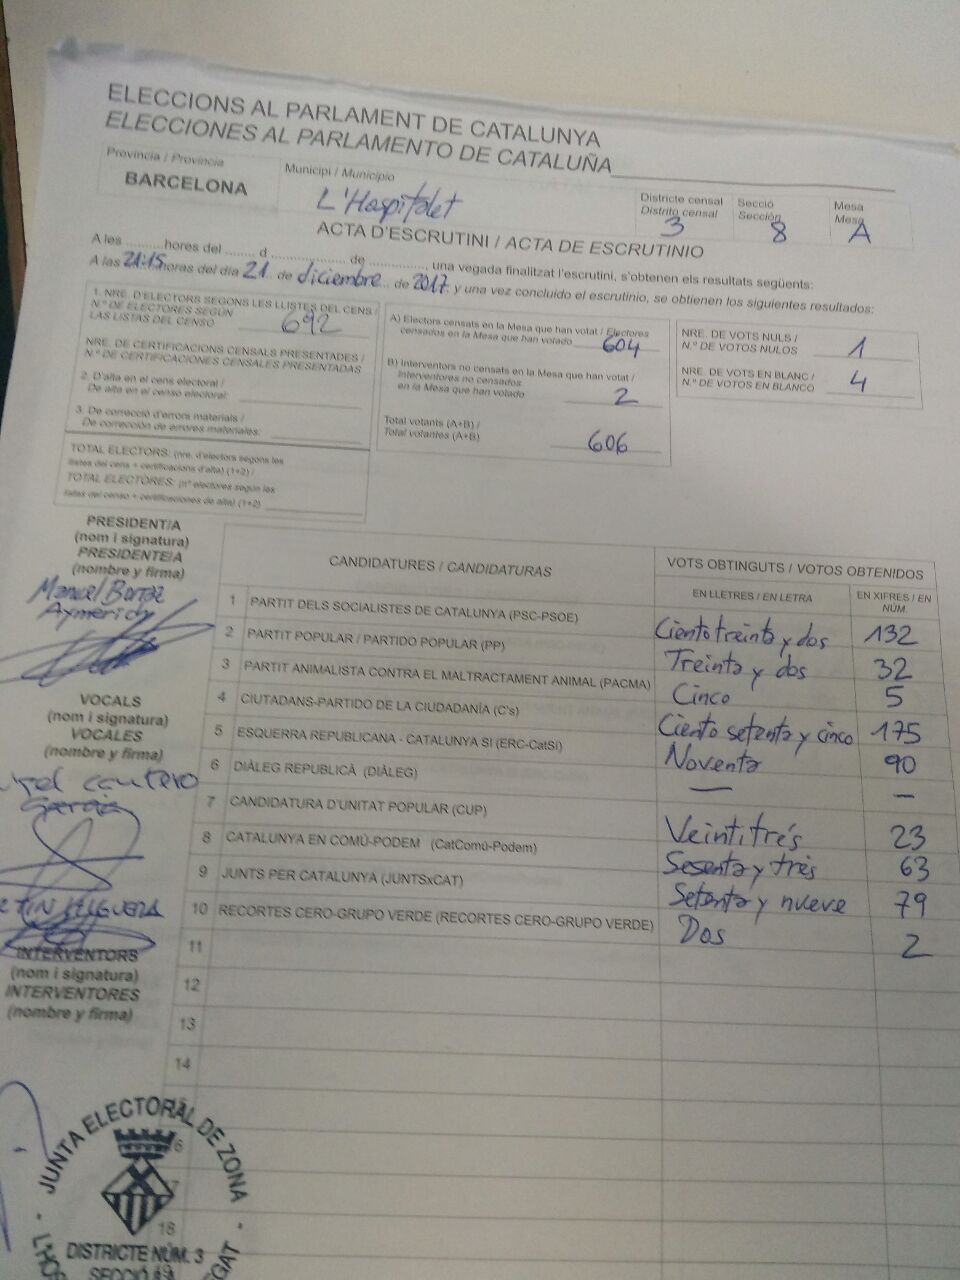 ELECCIONS AL PARLAMENT DE CATALUNYA
ELECCIONES AL PARLAMENTO DE CATALUÑA
Província / Provincia
BARCELONA
Municipi / Municipio
L'Hospitalet
Districte censal
Distrito censal
3
Secció
Sección
8
Mesa
Mesa
A
ACTA D'ESCRUTINI / ACTA DE ESCRUTINIO
A les ........... hores del ....... d ................... de .............., una vegada finalitzat l'escrutini, s'obtenen els resultats següents:
A las 21:15 horas del día 21 de diciembre de 2017 y una vez concluido el escrutinio, se obtienen los siguientes resultados:
1. NRE. D'ELECTORS SEGONS LES LLISTES DEL CENS /
N.º DE ELECTORES SEGÚN
LAS LISTAS DEL CENSO 692
NRE. DE CERTIFICACIONS CENSALS PRESENTADES /
N.º DE CERTIFICACIONES CENSALES PRESENTADAS
2. D'alta en el cens electoral /
De alta en el censo electoral:
3. De correcció d'errors materials /
De corrección de errores materiales:
TOTAL ELECTORS: (nre. d'electors segons les
llistes del cens + certificacions d'alta) (1+2) /
TOTAL ELECTORES: (nº electores según las
listas del censo + certificaciones de alta) (1+2)
A) Electors censats en la Mesa que han votat / Electores
censados en la Mesa que han votado 604
B) Interventors no censats en la Mesa que han votat /
Interventores no censados
en la Mesa que han votado 2
Total votants (A+B) /
Total votantes (A+B) 606
NRE. DE VOTS NULS /
N.º DE VOTOS NULOS 1
NRE. DE VOTS EN BLANC /
N.º DE VOTOS EN BLANCO 4
PRESIDENT/A
(nom i signatura)
PRESIDENTE/A
(nombre y firma)
Manuel
Aymerich
VOCALS
(nom i signatura)
VOCALES
(nombre y firma)
cantero
García
INTERVENTORS
(nom i signatura)
INTERVENTORES
(nombre y firma)
CANDIDATURES / CANDIDATURAS
VOTS OBTINGUTS / VOTOS OBTENIDOS
EN LLETRES / EN LETRA
EN XIFRES / EN NÚM.
1 PARTIT DELS SOCIALISTES DE CATALUNYA (PSC-PSOE) Ciento treinta y dos 132
2 PARTIT POPULAR / PARTIDO POPULAR (PP) Treinta y dos 32
3 PARTIT ANIMALISTA CONTRA EL MALTRACTAMENT ANIMAL (PACMA) Cinco 5
4 CIUTADANS-PARTIDO DE LA CIUDADANÍA (C's) Ciento setenta y cinco 175
5 ESQUERRA REPUBLICANA - CATALUNYA SÍ (ERC-CatSí) Noventa 90
6 DIÀLEG REPUBLICÀ (DIÀLEG) — —
7 CANDIDATURA D'UNITAT POPULAR (CUP) Veintitrés 23
8 CATALUNYA EN COMÚ-PODEM (CatComú-Podem) Sesenta y trés 63
9 JUNTS PER CATALUNYA (JUNTSxCAT) Setenta y nueve 79
10 RECORTES CERO-GRUPO VERDE (RECORTES CERO-GRUPO VERDE) Dos 2
11
12
13
14
18
JUNTA ELECTORAL DE ZONA
DISTRICTE NÚM. 3